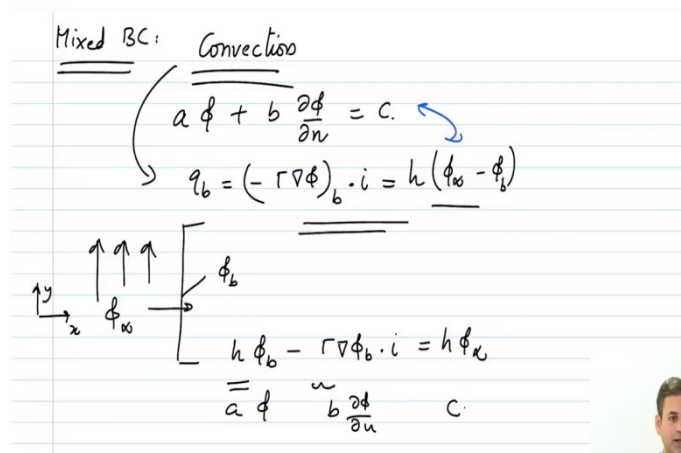 Mixed BC: Convection
a ϕ + b ∂ϕ/∂n = C.
q_b = (-Γ∇ϕ)_b · i = h(ϕ_∞ - ϕ_b)
ϕ_b
y
x
ϕ_∞
h ϕ_b - Γ∇ϕ_b · i = h ϕ_∞
a ϕ b ∂ϕ/∂n C.